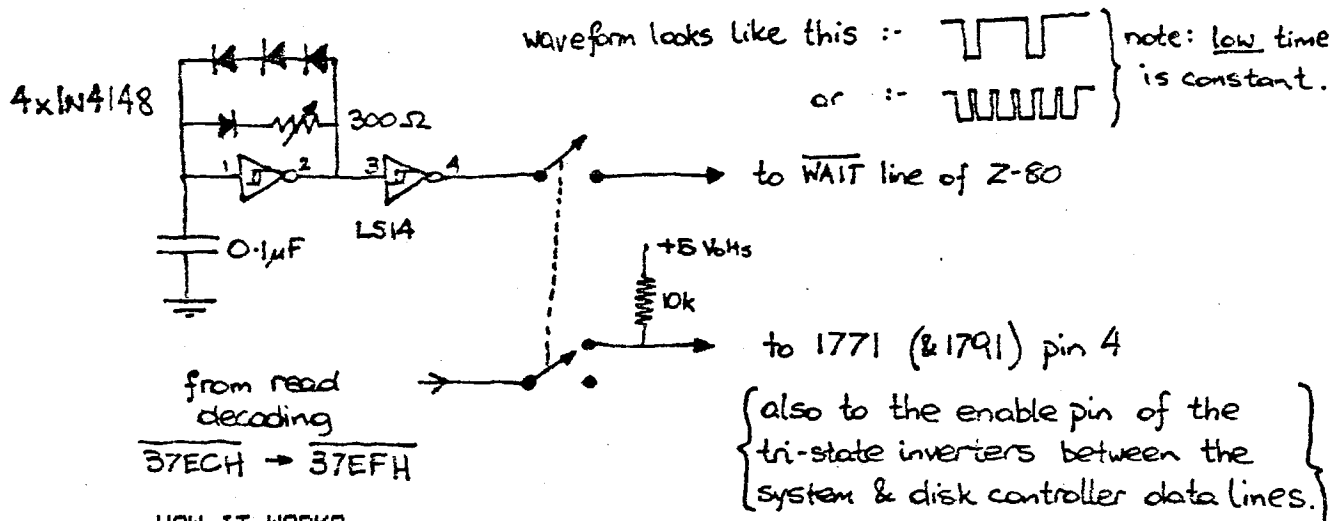 waveform looks like this :-
note: low time
is constant.
or :-
4x1N4148
300Ω
1 2 3 4
to WAIT line of Z-80
LS14
0.1µF
+5 Volts
10k
to 1771 (& 1791) pin 4
from read
decoding
37ECH → 37EFH
also to the enable pin of the
tri-state inverters between the
system & disk controller data lines.
HOW IT WORKS